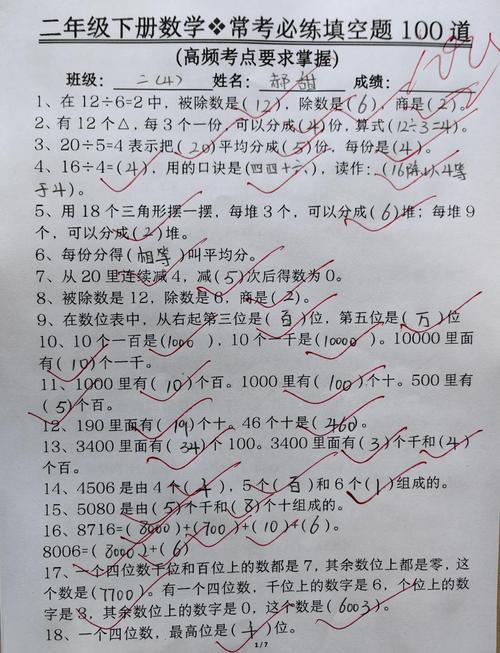 二年级下册数学❖常考必练填空题 100 道
(高频考点要求掌握)
班级： 二(4) 姓名： 郝甜 成绩：
1、在 12÷6=2 中，被除数是( 12 )，除数是( 6 )，商是( 2 )。
2、有 12 个△，每 3 个一份，可以分成( 4 )份，算式( 12÷3=4 )。
3、20÷5=4 表示把( 20 )平均分成( 5 )份，每份是( 4 )。
4、16÷4=( 4 )，用的口诀是( 四四十六 )，读作：( 16除以4等
于4 )。
5、用 18 个三角形摆一摆，每堆 3 个，可以分成( 6 )堆；每堆 9
个，可以分成( 2 )堆。
6、每份分得( 相等 )叫平均分。
7、从 20 里连续减 4，减( 5 )次后得数为 0。
8、被除数是 12，除数是 6，商是( 2 )。
9、在数位表中，从右起第三位是( 百 )位，第五位是( 万 )位
10、10 个一百是( 1000 )，10 个一千是( 10000 )。10000 里面
有( 10 )个一千。
11、1000 里有( 10 )个百。1000 里有( 100 )个十。500 里有
( 5 )个百。
12、190 里面有( 19 )个十。46 个十是( 460 )。
13、3400 里面有( 34 )个 100。3400 里面有( 3 )个千和( 4 )
个百。
14、4506 是由 4 个( 千 )，5 个( 百 )和 6 个( 1 )组成的。
15、5080 是由( 5 )个千和( 8 )个十组成的。
16、8716=( 8000 )+( 700 )+( 10 )+( 6 )。
8006=( 8000 )+( 6 )
17、一个四位数千位和百位上的数都是 7，其余数位上都是零，这
个数是( 7700 )。有一个四位数，千位上的数字是 6，个位上的数
字是 3，其余数位上的数字是 0，这个数是( 6003 )。
18、一个四位数，最高位是( 千 )位。
1/7